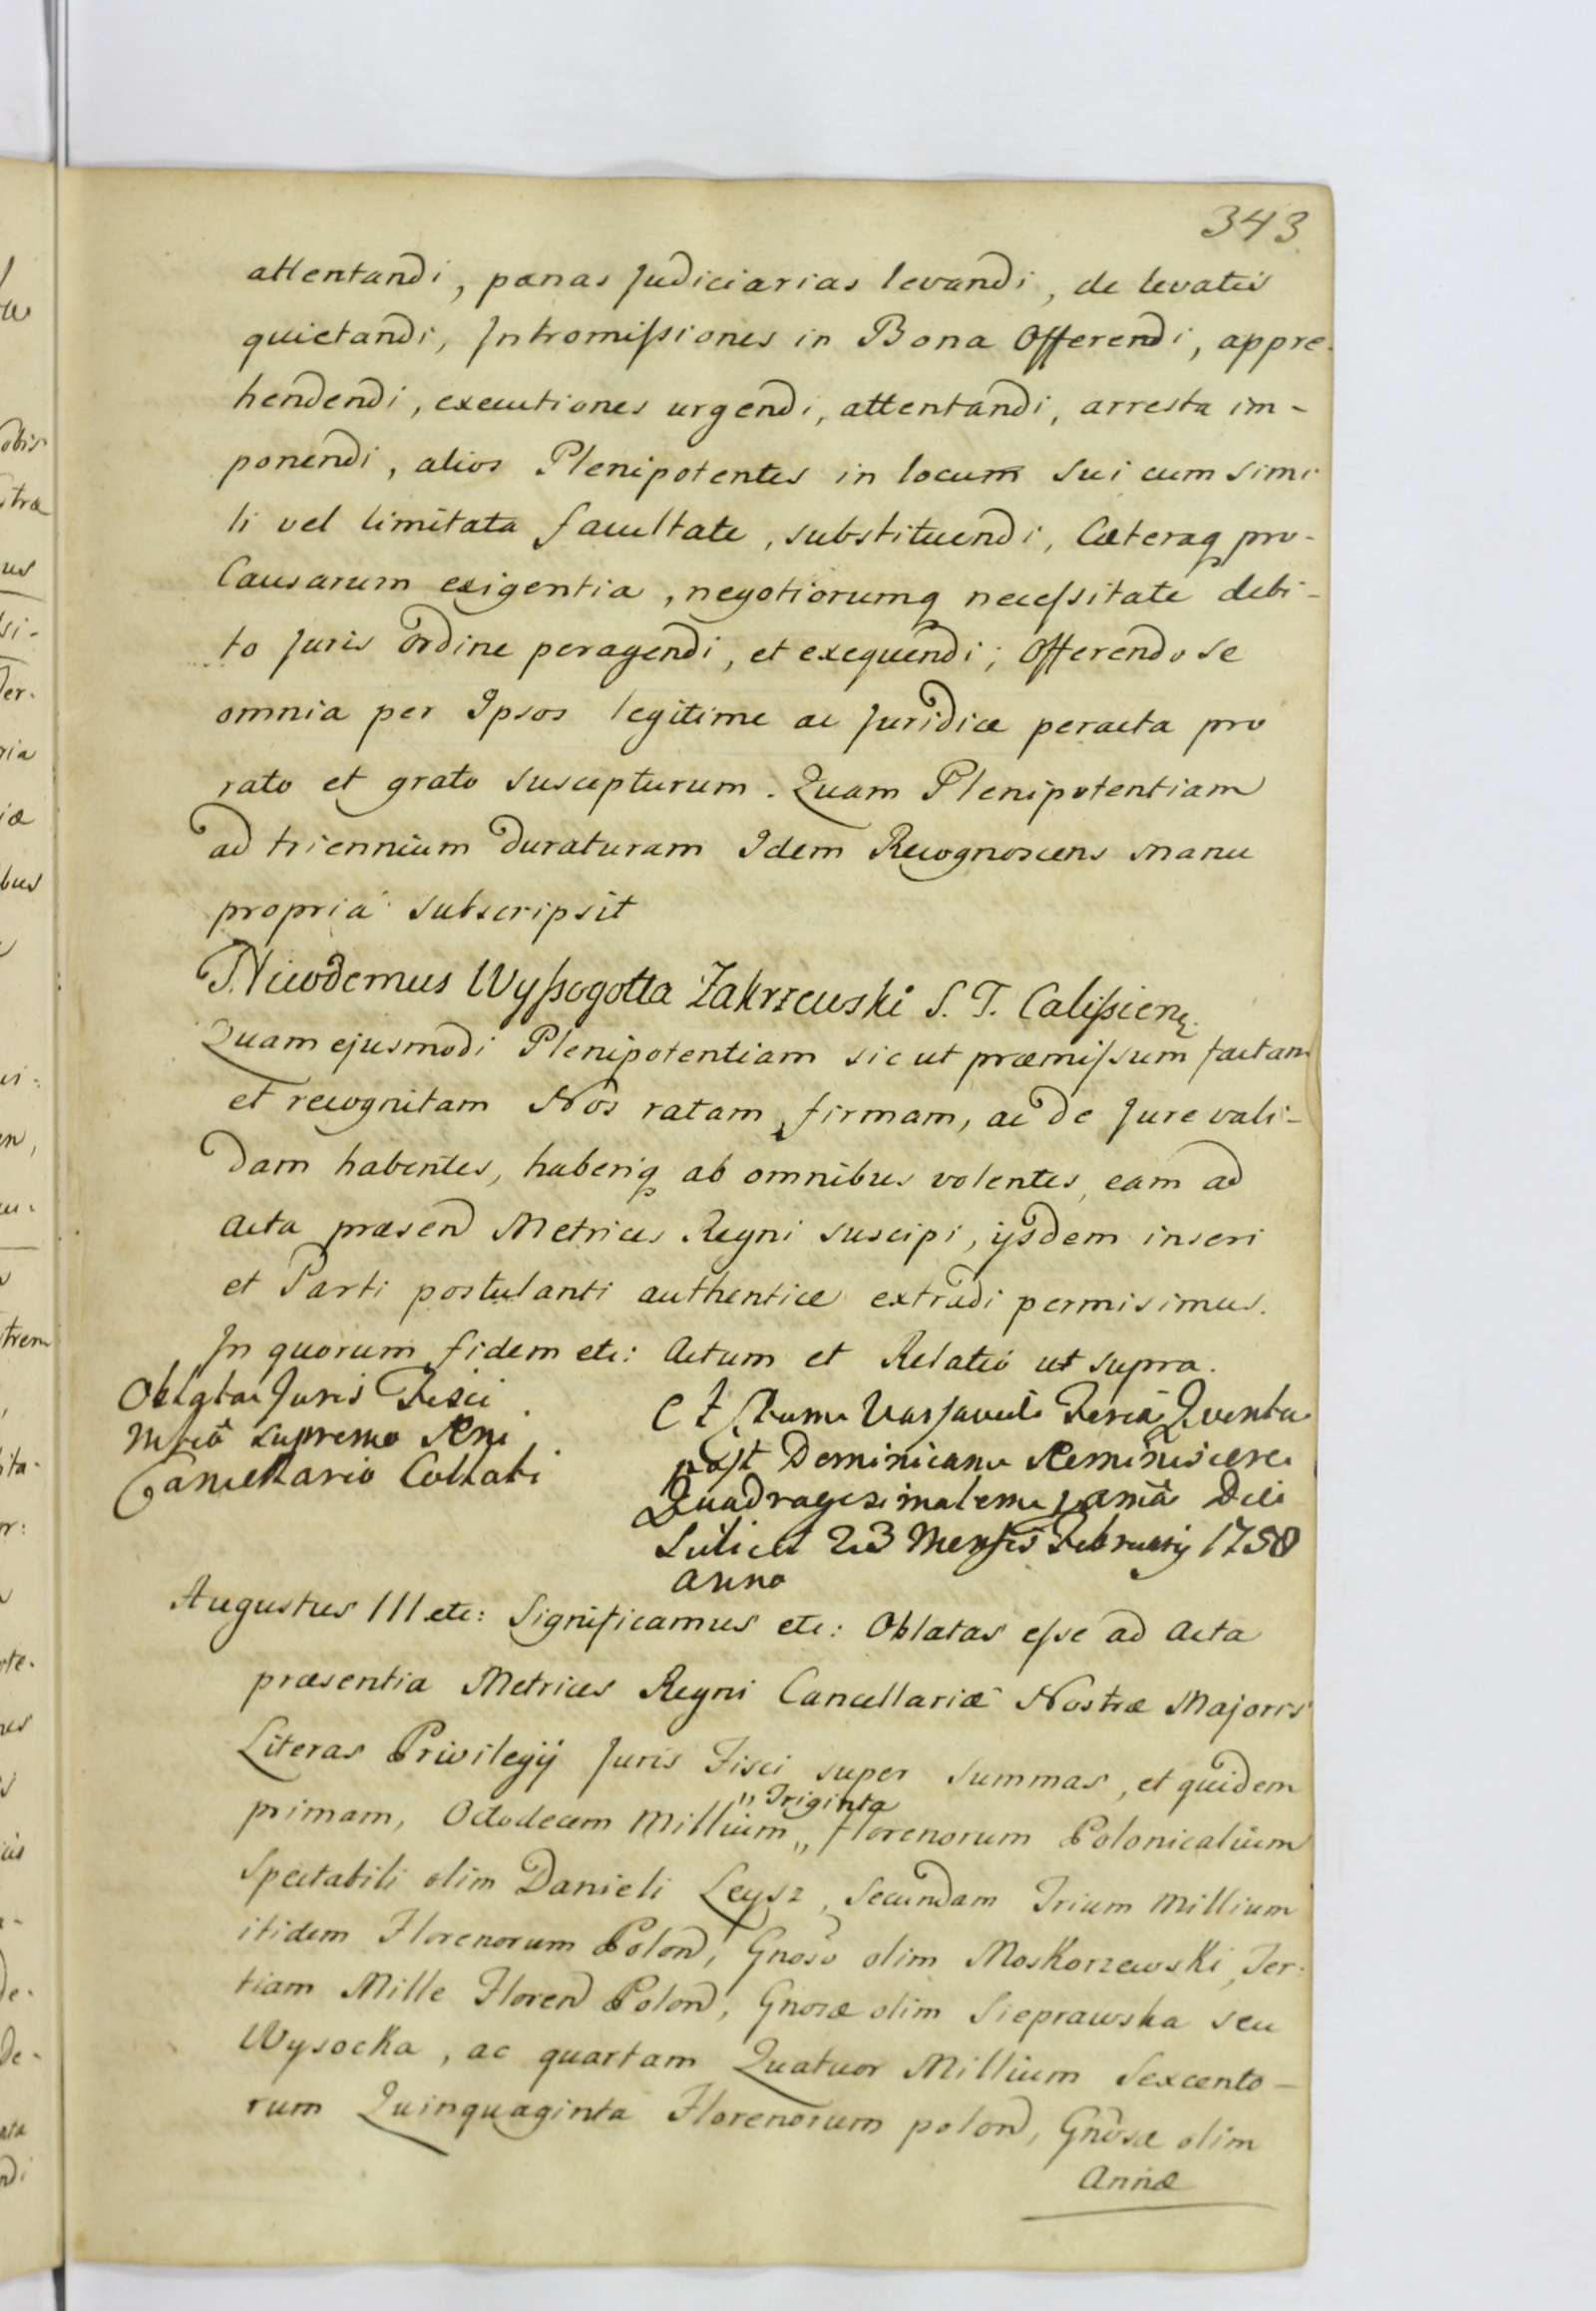 343
attentandi, pænas Judiciarias levandi, de levatis
quietandi, Intromissiones in Bona Offerendi, appre-
hendendi, executiones urgendi, attentandi, arresta im-
ponendi, alios Plenipotentes in locum sui cum simi
li vel limitata facultate, substituendi, Cæteraq pro-
Causarum exigentia, negotiorumq necessitate debi-
to Juris ordine peragendi, et exequendi; Offerendo se
omnia per Ipsos legitime ac Juridice peracta pro
rato et grato suscepturum. Quam Plenipotentiam
ad triennium duraturam Idem Recognoscens manu
propria subscripsit
Nicodemus Wyssogotta Zakrzewski S. T. Calissien
Quam ejusmodi Plenipotentiam sic ut præmissum factam
et recognitam Nos ratam, firmam, ac de Jure vali-
dam habentes, haberiq ab omnibus volentes, eam ad
Acta præsen Metrices Regni suscipi, ijsdem inseri
et Parti postulanti authentice extradi permisimus.
In quorum fidem etc: Actum et Relatio ut supra.
Oblata Juris Fisci
supremo
Cancellario Collati
Varsaviæ Feria Quinta
post Dominicam Reminiscere
Quadragesimalem Die
Scilicet 23 Mensis Februarij 1758
Anno
Augustus III etc: Significamus etc: Oblatas esse ad Acta
præsentia Metrices Regni Cancellariæ Nostræ Majoris
Literas Privilegij Juris Fisci super summas, et quidem
primam, Octodecem Millium „Triginta„ Florenorum Polonicalium
Spectabili olim Danieli Leysz, Secundam Trium Millium
itidem Florenorum Polon, Gnoso olim Moskorzewski, Ter-
tiam Mille Floren Polon, Gnosæ olim Sieprawska seu
Wysocka, ac quartam Quatuor Millium Sexcento-
rum Quinquaginta Florenorum polon, Gnosæ olim
Annæ